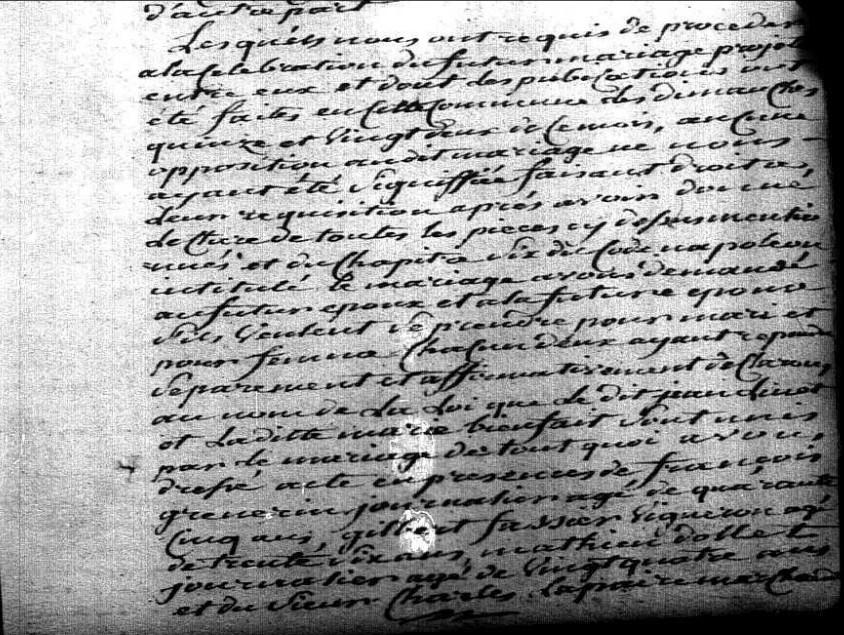 d'autre part
Les quels nous ont requis de proceder
a la Celebration du futur mariage projeté
entre eux et dont les publications ont
été faites en Cette Commune les dimanches
quinze et Vingt deux de Ce mois, aucune
opposition audit mariage ne nous
ayant été Signiffiée faisant droit a
leur requisition aprés avoir donné
Lecture de toutes les pieces cy dessus mentio
nnés et du Chapitre Six du Code napoleon
intitulé le mariage avons demandé
au futur epoux et a la future epouse
S'ils Veulent Se prendre pour mari et
pour femme Chacun deux ayant repondu
Separement et affirmativement declarons
au nom de La Loi que Le dit jean
et Laditte marie bienfait Sont unis
par le mariage de tout quoi avons
dressé acte en presences de françois
grenerin journalier agé de quarante
Cinq ans, gilbert Vigneron agé
de trente Six ans mathieu dollet
journalier agé de Vingt quatre ans
et du Sieur Charles marchand